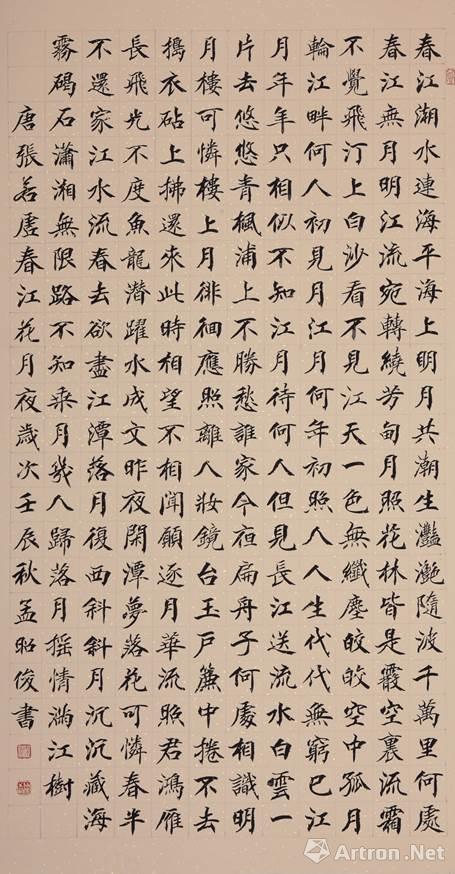 春江潮水連海平海上明月共潮生灩灧隨波千萬里何處
春江無月明江流宛轉繞芳甸月照花林皆是霰空裏流霜
不覺飛汀上白沙看不見江天一色無纖塵皎皎空中孤月
輪江畔何人初見月江月何年初照人人生代代無窮已江
月年年只相似不知江月待何人但見長江送流水白雲一
片去悠悠青楓浦上不勝愁誰家今夜扁舟子何處相識明
月樓可憐樓上月徘徊應照離人妝鏡台玉戶簾中捲不去
搗衣砧上拂還來此時相望不相聞願逐月華流照君鴻雁
長飛光不度魚龍潛躍水成文昨夜閑潭夢落花可憐春半
不還家江水流春去欲盡江潭落月復西斜斜月沉沉藏海
霧碣石瀟湘無限路不知乘月幾人歸落月搖情滿江樹
唐張若虛春江花月夜歲次壬辰秋孟昭俊書
Artron.Net